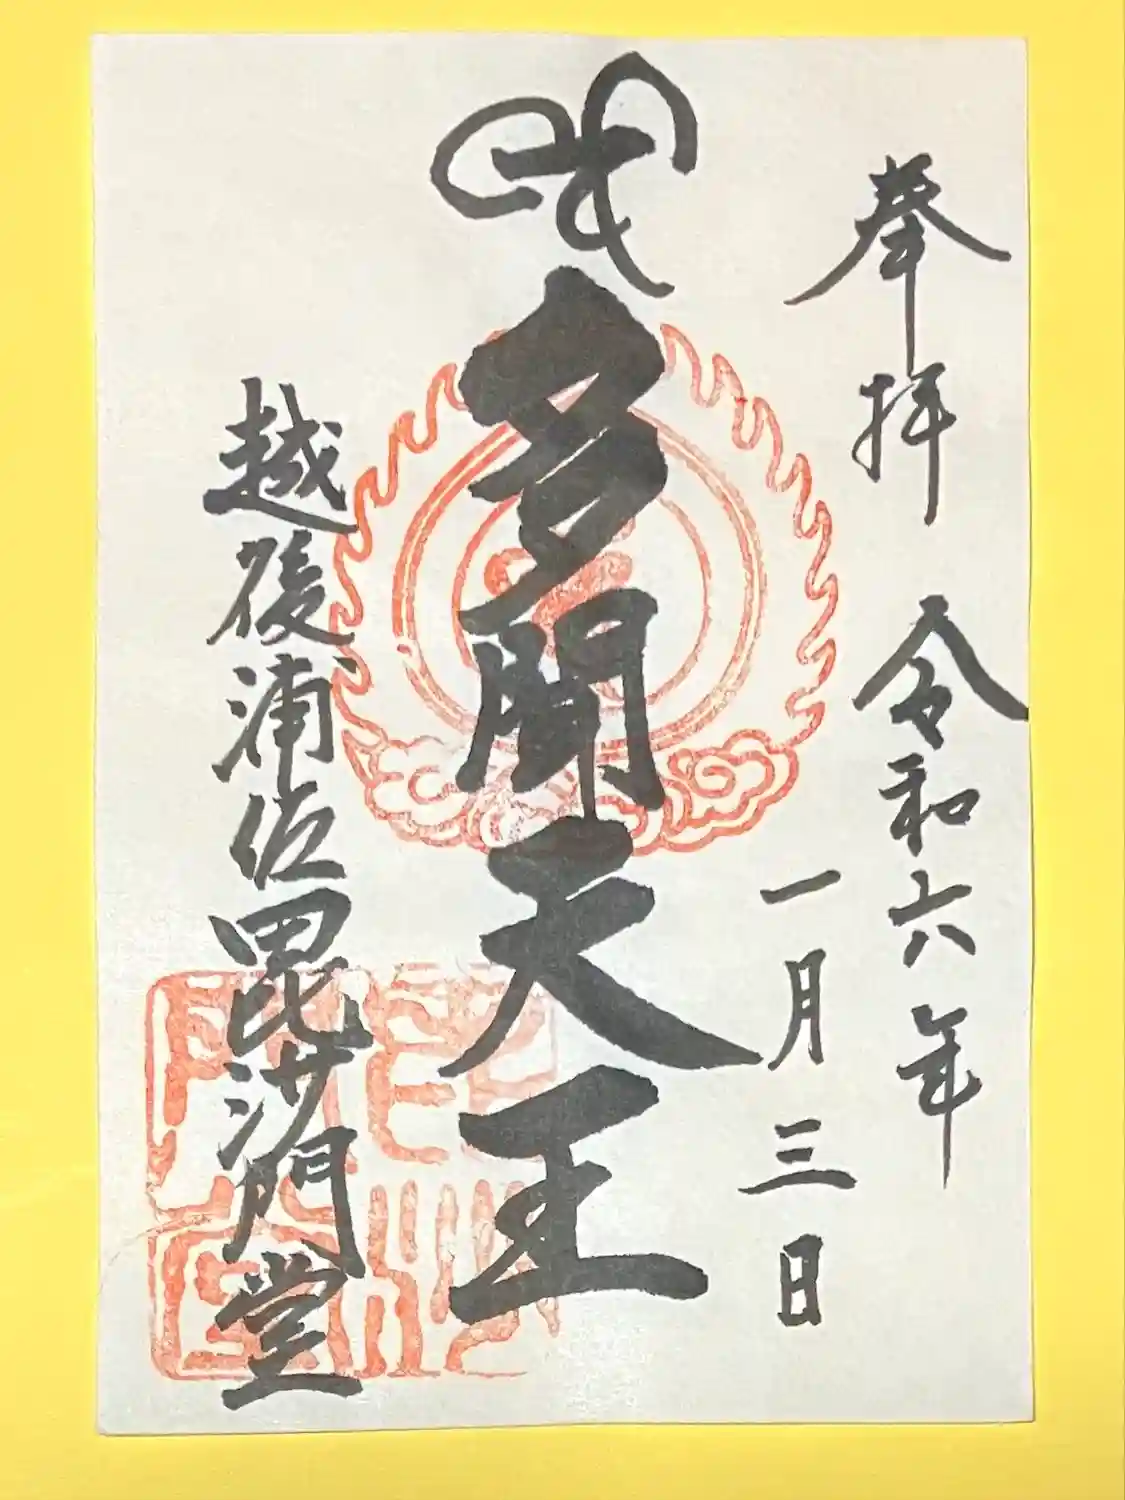 奉拝
令和六年
一月三日
多聞天王
越後浦佐毘沙門堂